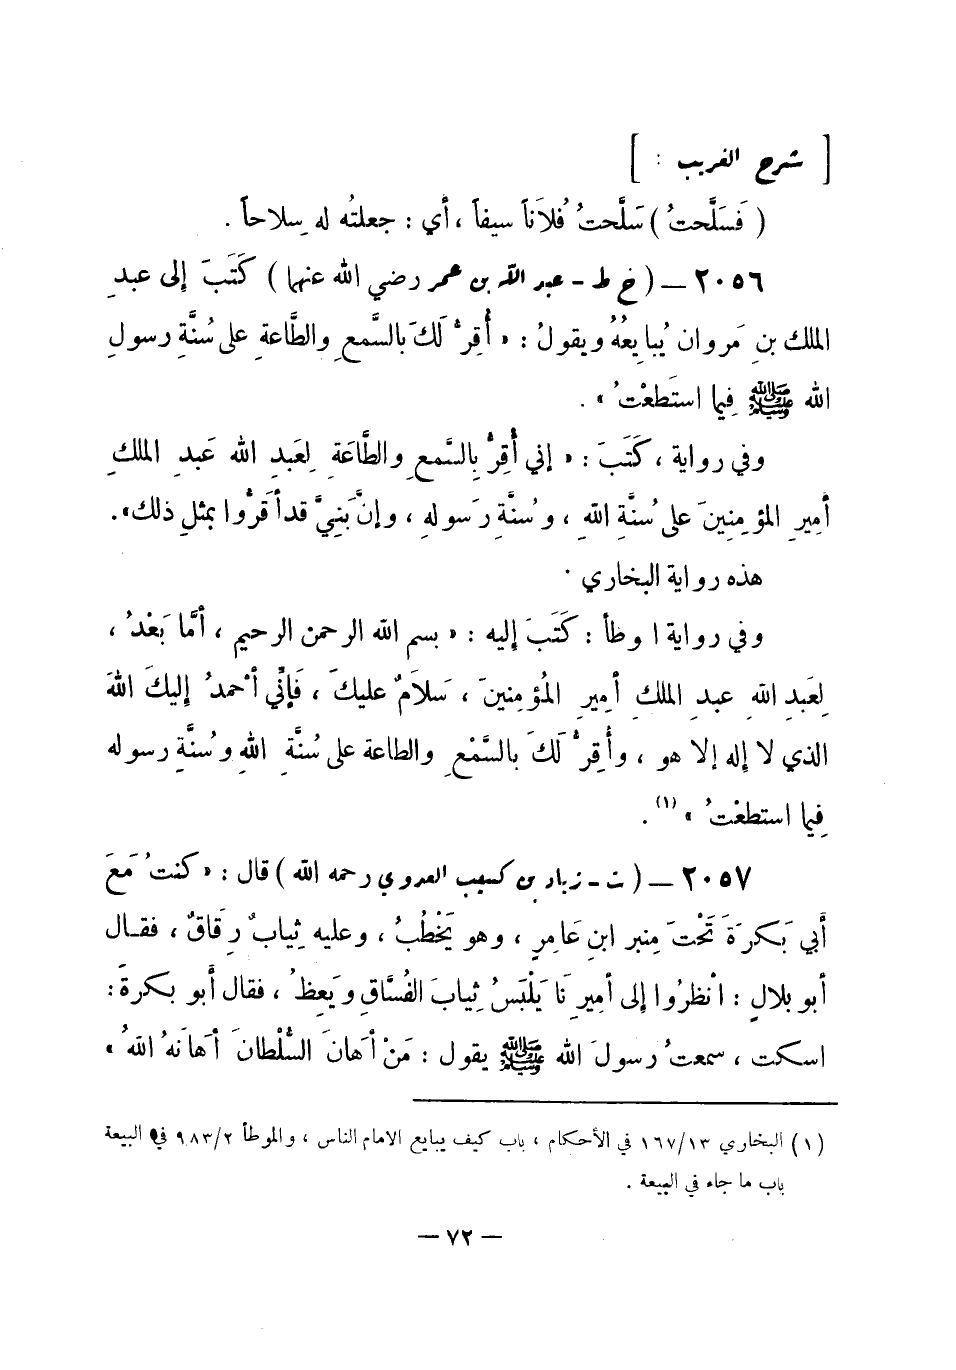 [ شرح الغريب : ]
( فَسَلَّحتُ ) سَلَّحتُ فُلاَناً سيفاً ، أي : جعلتُه له سِلاحاً .
٢٠٥٦ — ( خ ط - عبد الله بن عمر رضي الله عنهما ) كَتَبَ إلى عبدِ
الملك بنِ مَروان يُبايِعُهُ ويقولُ : « أُقِرُّ لَكَ بالسَّمعِ والطَّاعةِ على سُنَّةِ رسولِ
الله ﷺ فِيما استَطعْتُ » .
وفي رواية ، كَتَبَ : « إني أُقِرُّ بِالسَّمعِ والطَّاعَةِ لِعَبدِ الله عَبدِ الملكِ
أَمِيرِ المؤمِنِينَ على سُنَّةِ اللهِ ، وسُنَّةِ رَسولِهِ ، وإنَّ بَنِيَّ قد أَقَرُّوا بمثلِ ذلك».
هذه رواية البخاري .
وفي رواية ا وطأ : كَتَبَ إليه : « بسم الله الرحمن الرحيم ، أمَّا بَعْدُ ،
لِعَبدِ اللهِ عبدِ الملكِ أمِيرِ المُؤمِنينَ ، سَلامٌ عليكَ ، فَإنِّي أَحمدُ إليكَ اللهَ
الذي لا إله إلا هو ، وأُقِرُّ لَكَ بالسَّمْعِ والطاعة على سُنَّةِ اللهِ وسُنَّةِ رسوله
فِيما استطعْتُ » (١) .
٢٠٥٧ — ( ت - زياد بن كسيب العدوي رحمه الله ) قال : « كنتُ مَعَ
أَبي بَكرَةَ تَحْتَ مِنبرِ ابنِ عَامِرٍ ، وهو يَخْطُبُ ، وعليه ثِيابٌ رِقاقٌ ، فقـال
أبو بلالٍ : انْظرُوا إلى أمِيرِنَا يَلْبَسُ ثِيابَ الفُسَّاقِ ويَعِظُ ، فقال أَبو بكرةَ :
اسكت ، سمعتُ رسولَ الله ﷺ يقول : مَنْ أهَانَ السُّلْطانَ أهَانَهُ اللهُ »
(١) البخاري ١٦٧/١٣ في الأحكام ، باب كيف يبايع الامام الناس ، والموطأ ٩٨٣/٢ في البيعة
باب ما جاء في البيعة .
— ٧٢ —